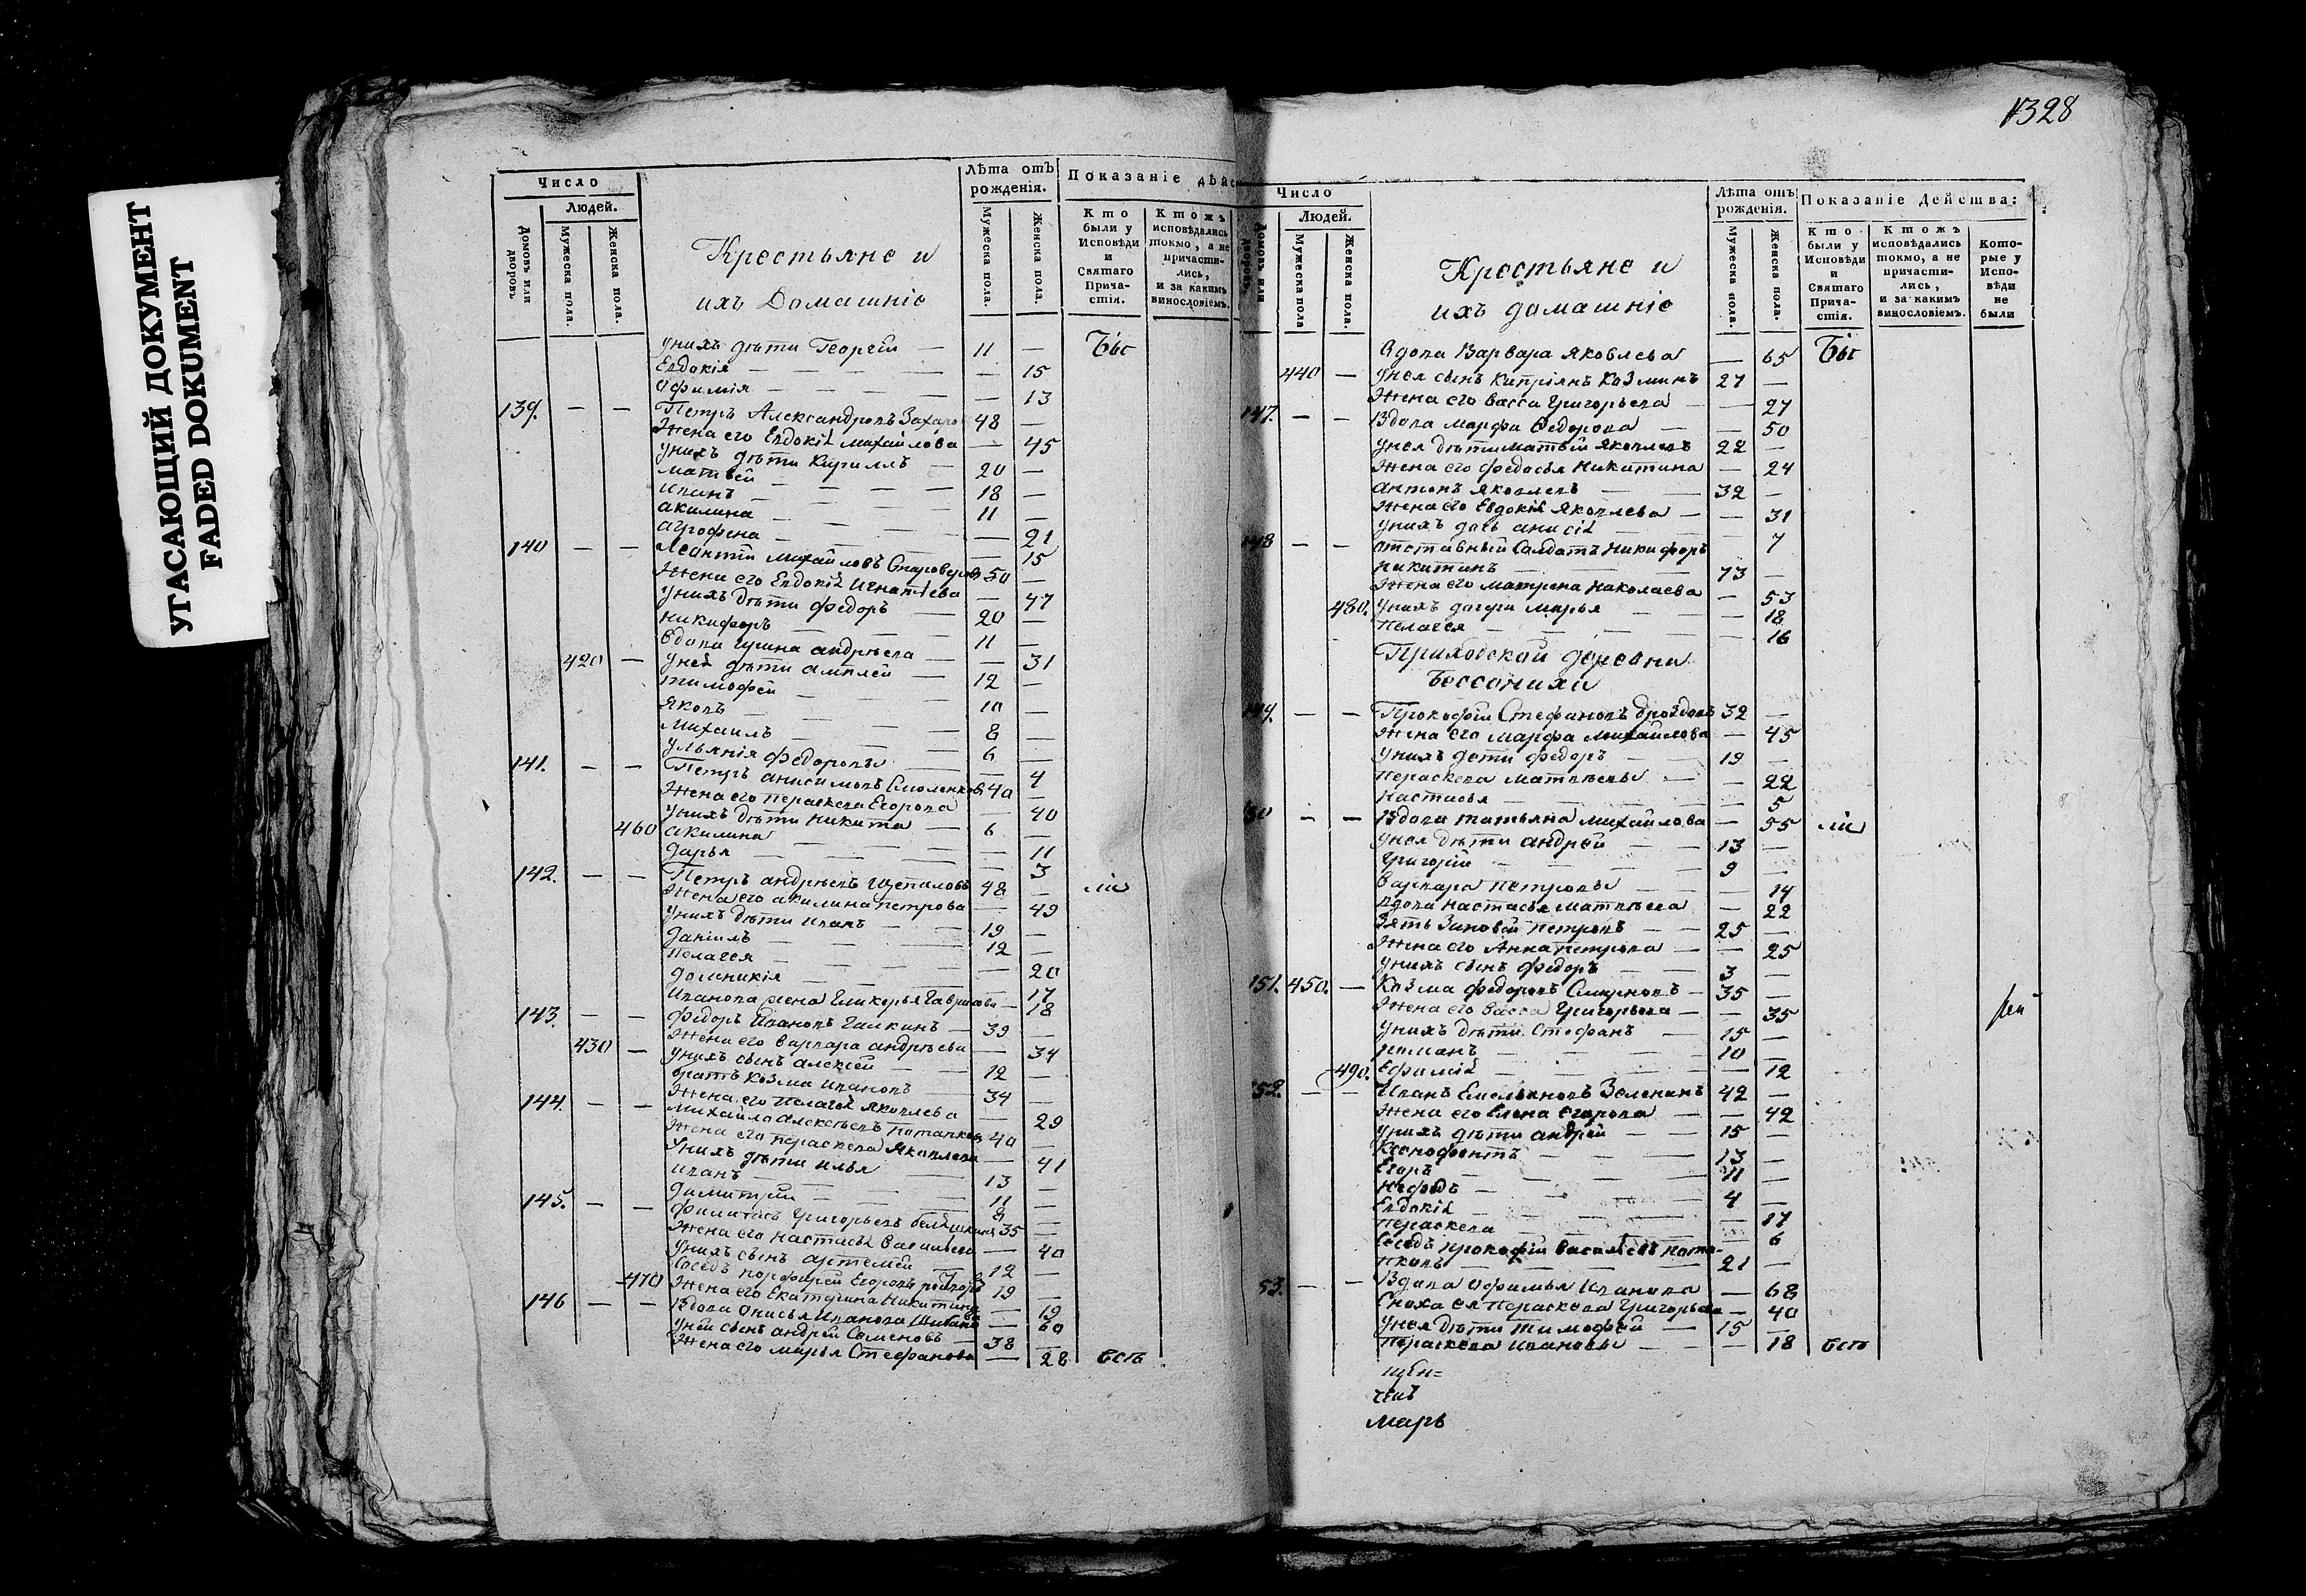 УТАСАЮЩИЙ ДОКУМЕНТ
FADED DOKUMENT
Число
Людей.
Домовъ или дворовъ
Мужеска пола.
Женска пола.
Крестьяне и
ихъ Домашніе
Лѣта отъ рожденія.
Мужеска пола.
Женска пола.
Показаніе дѣйс
Кто были у Исповѣди и Святаго Прича-стія.
Ктожъ исповѣдались токмо, а не причасти-лись, и за какимъ винословіемъ.
унихъ дѣти Георгій — 11 — Бы
Евдокія — — 15
Офимія — — 13
139. — — Петръ Александровъ Захаро 48 —
Жена его Евдокія Михайлова — 45
унихъ дѣти Кириллъ — 20 —
Матвей — 18 —
Иванъ — 11 —
Акилина — — 21
Агрофена — — 15
140 — — Леонтій Михайловъ Староверовъ 50 —
Жена его Евдокія Игнатіева — 47
унихъ дѣти Федоръ — 20 —
Никифоръ — 11 —
вдова Ирина Андрѣева — — 31
420 — унея дѣти Амплей — 12 —
Тимофей — 10 —
Яковъ — 8 —
Михаилъ — 6 —
Ульянія Федоровы — — 4
141. — — Петръ Анисимовъ Смоленковъ 40 —
Жена его Пераскева Егорова — 40
унихъ дѣти Никита — 6 —
460 Акилина — — 11
Дарья — — 3
142. — — Петръ Андрѣевъ Щепаловъ 48 — ли
Жена его Акилина Петрова — 49
унихъ дѣти Иванъ — 19 —
Даніилъ — 12 —
Пелагея — — 20
Домникія — — 17
Иванова жена Гликерья Гаврилова — 18
143. — — Федоръ Ивановъ Галкинъ — 39 —
Жена его Варвара Андрѣева — 34
430 — унихъ сынъ Алексій — 12 —
братъ Козма Ивановъ — 34 —
Жена его Пелагея Яковлева — 29
144. — — Михайло Алексѣевъ Потапковъ 40 —
Жена его Пераскева Яковлева — 41
Унихъ дѣти Илья — 13 —
Иванъ — 11 —
Димитрій — 8 —
145. — — Филиппъ Григорьевъ 35 —
Жена его Настасья Васильева — 40
Унихъ сынъ Артемей — 12 —
Соседъ Порфирей Егоровъ 19 —
470 Жена его Екатерина Никитина — 19
146 — — Вдова Анисья Иванова — 60
Уней сынъ Андрей Семеновъ — 38 —
Жена его Марья Стефанова — 28 Всть
1328
Число
Людей.
Домовъ или дворовъ
Мужеска пола
Женска пола.
Крестьяне и
ихъ домашніе
Лѣта отъ рожденія.
Мужеска пола.
Женска пола.
Показаніе Действа:
Кто были у Исповѣди и Святаго Прича-стія.
Ктожъ исповѣдались токмо, а не причасти-лись, и за какимъ винословіемъ.
Кото-рые у Испо-вѣди не были
Вдова Варвара Яковлева — 65 Бы
440 — Унея сынъ Кипріянъ Козминъ 27 —
Жена его Васса Григорьева — 27
147. — — Вдова Марфа Федорова — — 50
Унея дѣти Матвѣй Яковлевъ 22 —
Жена его Федосья Никитина — 24
Антонъ Яковлевъ — 32 —
Жена его Евдокія Яковлева — — 31
Унихъ дочь Анисія — 7
148 — — отставный Салдатъ Никифоръ
Никитинъ — 73 —
Жена его Матрена Николаева — 53
480. Унихъ дочери Марья — — 18
Пелагея — — 16
Приходской деревни
Бессонихи
149. — — Прокофій Стефановъ Дроздовъ 32 —
Жена его Марфа Михайлова — 45
Унихъ дети Федоръ — 19 —
Пераскева Матвѣевы — — 22
Настасья — — 5
150 — — Вдова Татьяна Михайлова — 55 ли
Унея дѣти Андрей — 13 —
Григорій — 9 —
Варвара Петровы — — 14
вдова Настасья Матвѣева — 22
Зять Зиновей Петровъ — 25 —
Жена его Анна Петрова — — 25
Унихъ сынъ Федоръ — 3 —
151. 450. — Козма Федоровъ Смирновъ — 35 —
Жена его Васса Григорьева — — 35
Унихъ дѣти Стефанъ — 15 —
Романъ — 10 —
490. Ефимія — — 12
152. — — Иванъ Емельяновъ Зеленинъ 42 —
Жена его Елена Егорова — — 42
Унихъ дѣти Андрей — 15 —
Ксенофонтъ — 13 —
Егоръ — 11 —
Нефедъ — 4 —
Евдокія — — 17
Пераскева — — 6
Соседъ Прокофій Васильевъ Пота-
пковъ — 21 —
53. — — Вдова Офимья Иванова — 68
Сноха ея Пераскева Григорьева — 40
Унея дѣти Тимофей — 15 —
Пераскева Ивановы — — 18 Всть
Марь